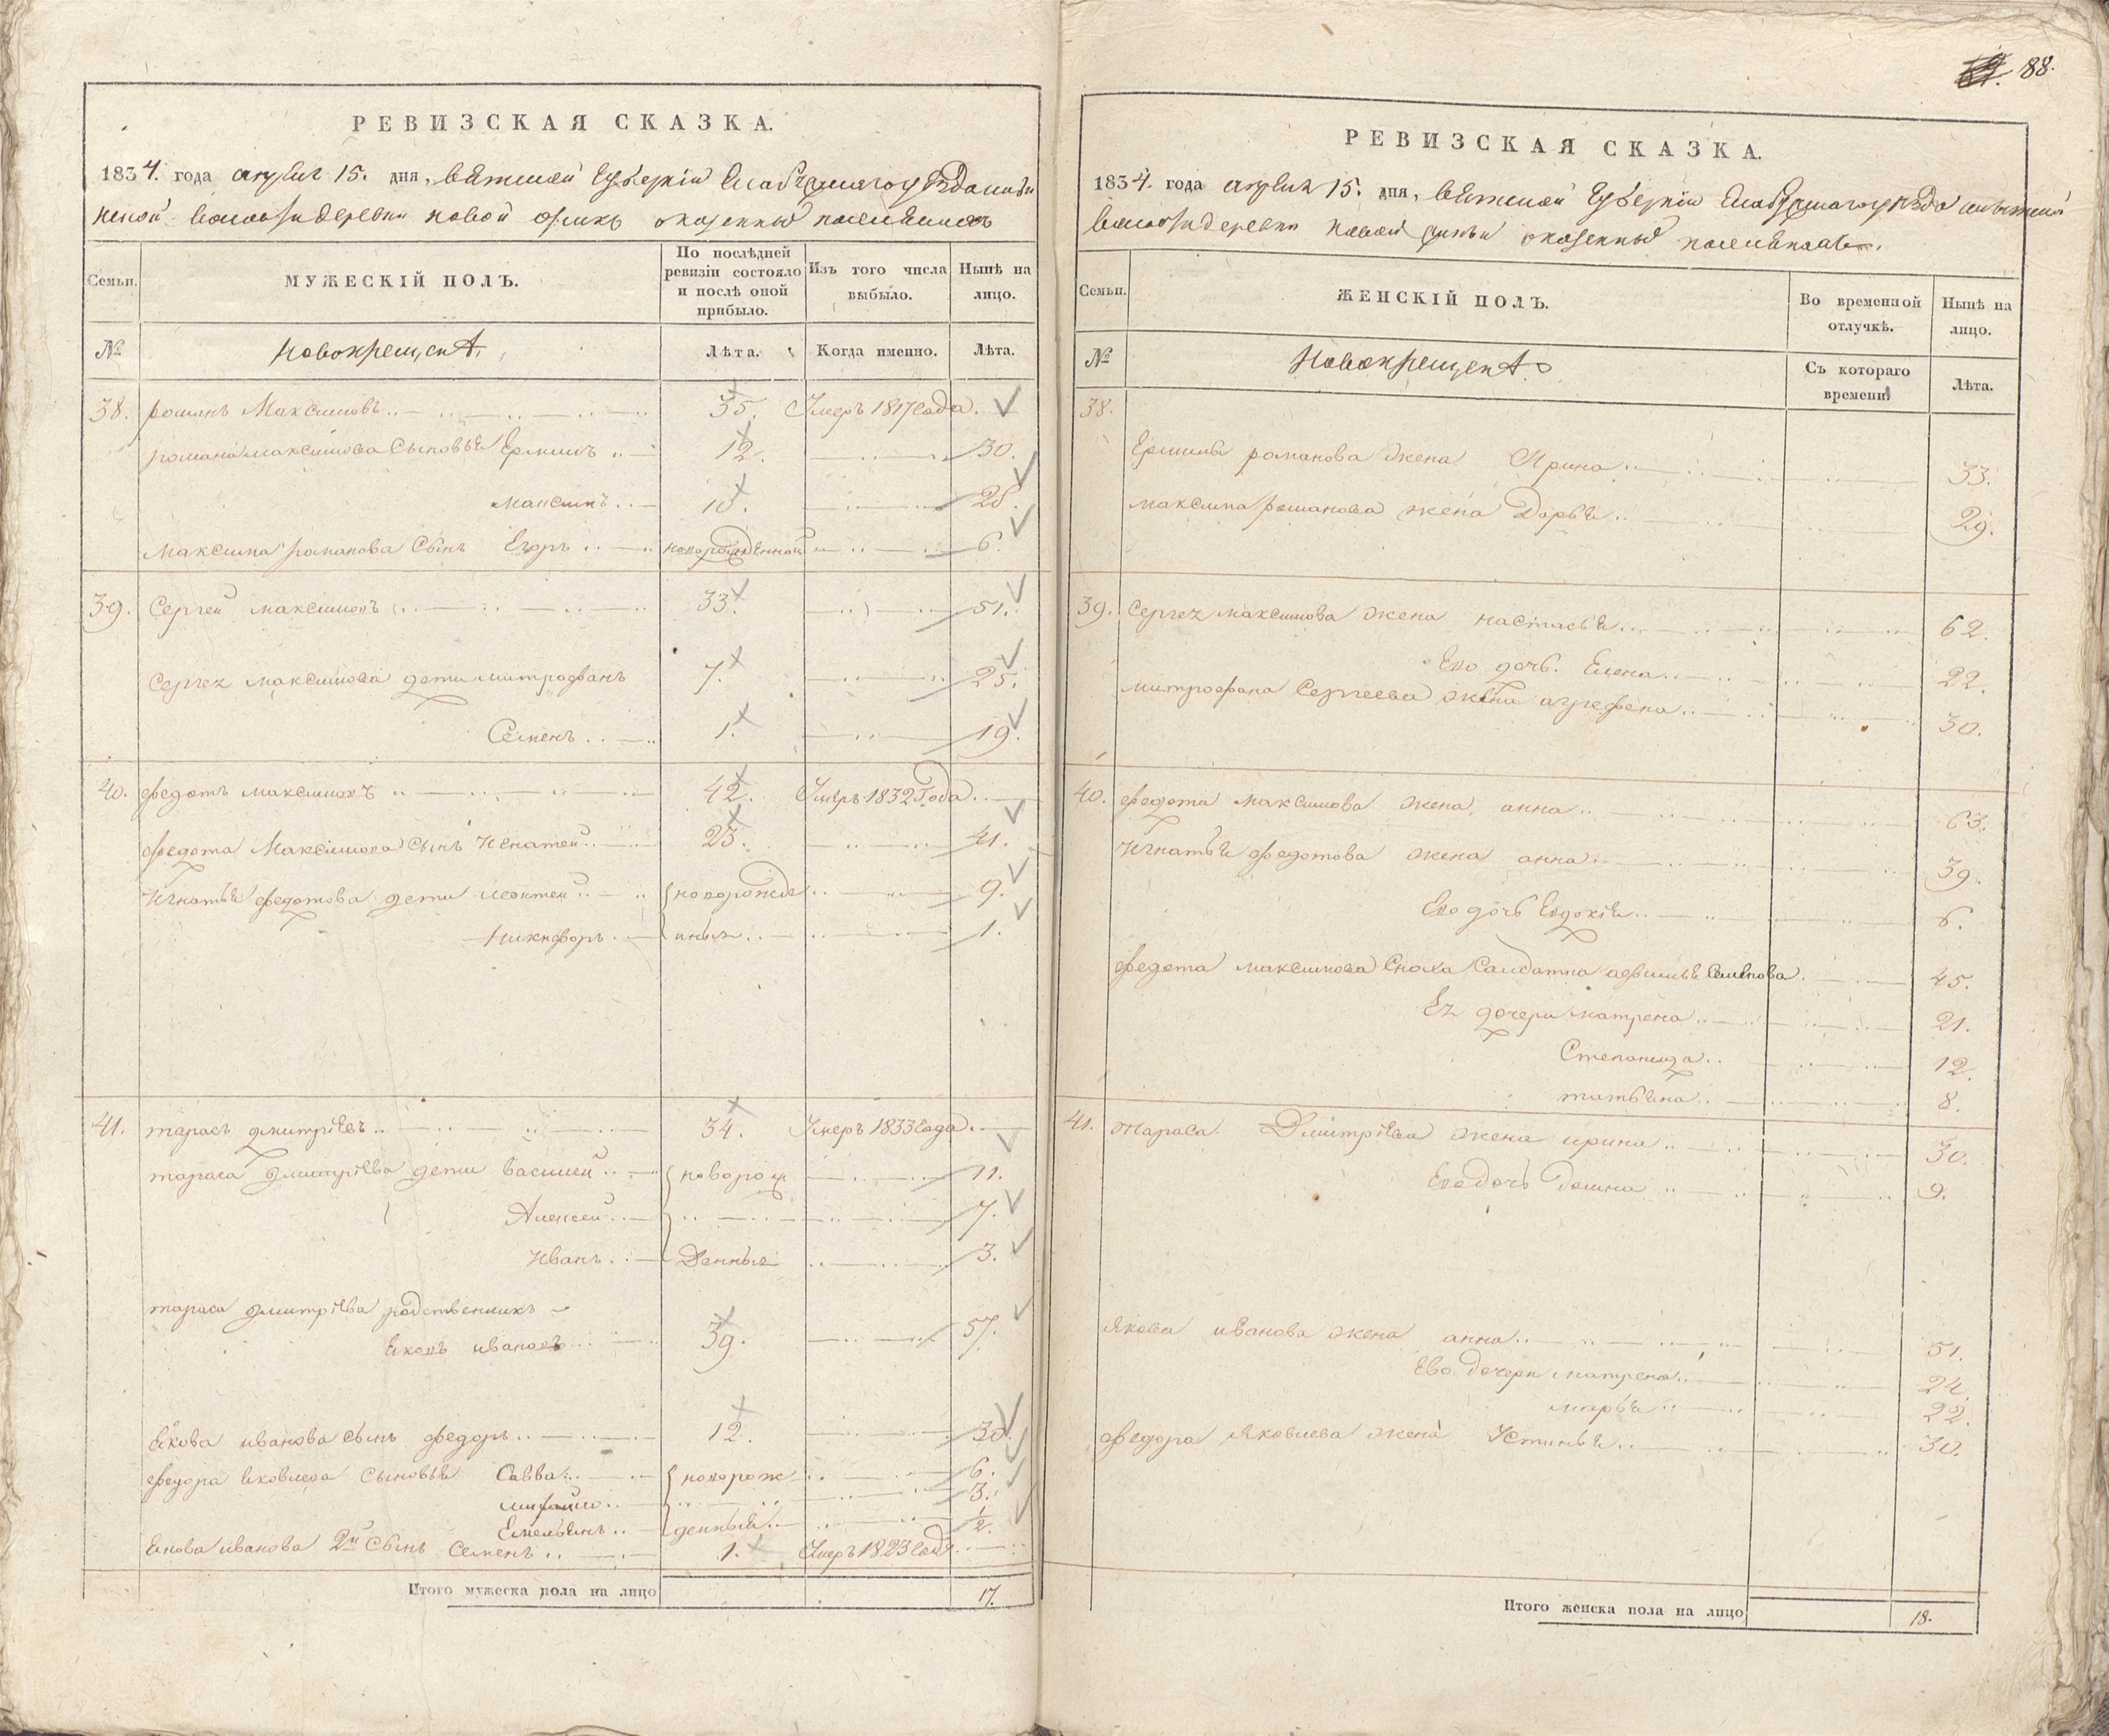 88.
РЕВИЗСКАЯ СКАЗКА.
1834. года апреля 15. дня, вятской губернии Елабужскаго уезда
волости деревни новой о казенных поселянах
Семьи.
МУЖЕСКІЙ ПОЛЪ.
По послѣдней ревизіи состояло и послѣ оной прибыло.
Изъ того числа выбыло.
Нынѣ на лицо.
№
Новокрещены.
Лѣта.
Когда именно.
Лѣта.
38. романъ Максимовъ 35. Умеръ 1817 года.
романа максимова сыновья Ермилъ 12. 30.
максимъ 10. 28.
максима романова сынъ Егоръ новорожденной 6.
39. Сергей максимовъ 33. 51.
Сергея максимова дети митрофанъ 7. 25.
Семенъ 1. 19.
40. федотъ максимовъ 42. Умеръ 1832 Года.
федота Максимова сынъ Игнатей 23. 41.
Игнатья федотова дети леонтей новорожд 9.
Никифоръ енныя 1.
41. тарасъ дмитріевъ 34. Умеръ 1833 года.
тараса дмитріева дети василей новорож 11.
Алексей 7.
Иванъ Денныя 3.
тараса дмитріева родственникъ
Яковъ ивановъ 39. 57.
Якова иванова сынъ федоръ 12. 30.
федора яковлева сыновья Савва новорож 6.
михайло 3.
Емельянъ денныя 1/2.
Якова иванова 2й сынъ семенъ 1. Умеръ 1823 года
Итого мужеска пола на лицо 17.
РЕВИЗСКАЯ СКАЗКА.
1834. года апреля 15. дня, вятской губернии Елабужскаго уезда
волости деревни новой о казенных поселянах.
Семьи.
ЖЕНСКІЙ ПОЛЪ.
Во временной отлучкѣ.
Нынѣ на лицо.
№
Новокрещены
Съ котораго времени.
Лѣта.
38.
Ермила романова жена Ирина 33.
максима романова жена Дарья 29.
39. Сергея максимова жена настасья 62.
Ево дочь. Елена 22.
митрофана Сергеева жена агрефена 30.
40. федота максимова жена анна 63.
Игнатья федотова жена анна 39.
Ево дочь Евдокія 6.
федота максимова сноха салдатка афимья семенова 45.
Ея дочери матрена 21.
Степанида 12.
татьяна 8.
41. тараса Дмитріева жена ирина 30.
Ево дочь Домна 9.
Якова иванова жена анна 51.
Ево дочери матрена 24.
марья 22.
федора яковлева жена Устинья 30.
Итого женска пола на лицо 18.